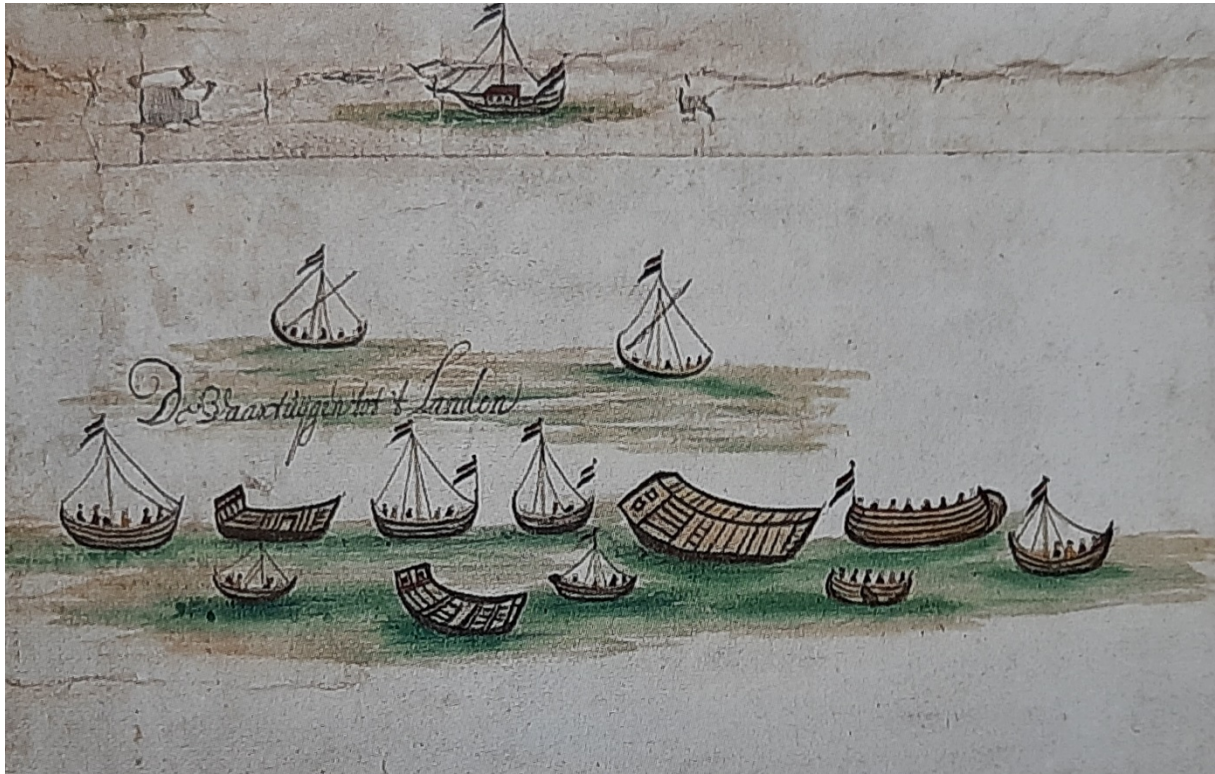 De Vaartuÿgen tot 't Landen